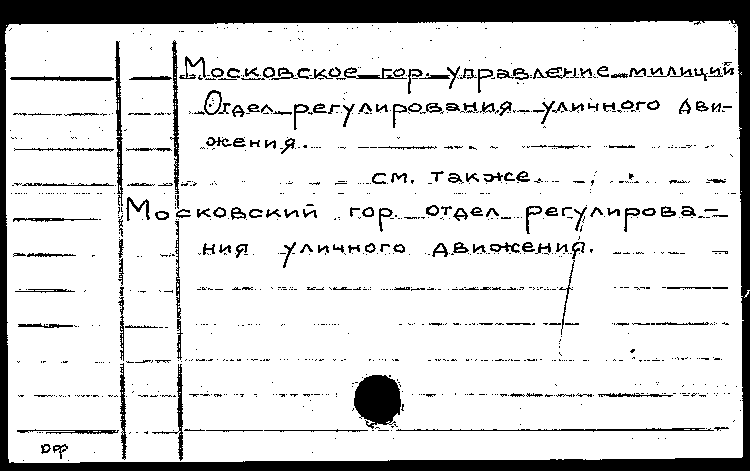 Московское гор. управление милиции
Отдел регулирования уличного дви-
жения.
см. также
Московский гор. отдел регулирова-
ния уличного движения.
рф